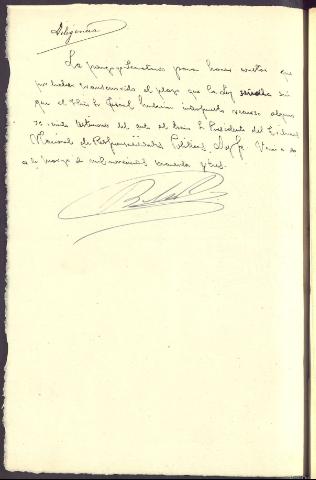 Diligencia
La pongo yo Secretario para hacer constar que
por haber transcurrido el plazo que la Ley señala sin
que el Sr. Fiscal hubiera interpuesto recurso alguno
se remite testimonio del auto al Presidente del Tribunal
Nacional de Responsabilidades Políticas. Doy fe.
de marzo de mil novecientos cuarenta y tres.